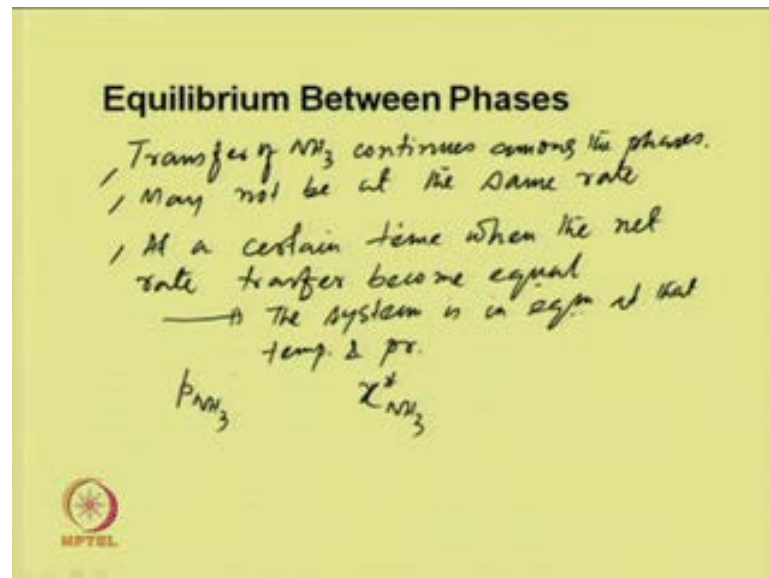 Equilibrium Between Phases
, Transfer of NH3 continues among the phases.
, May not be at the same rate
, At a certain time when the net
rate trasfer become equal
→ The system is in eqm at that
temp. & pr.
pNH3 x*NH3
NPTEL